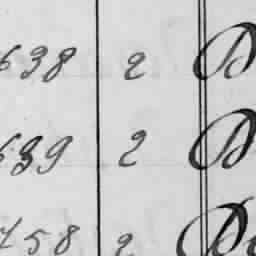 638 2 B
639 2 B
758 2 Be